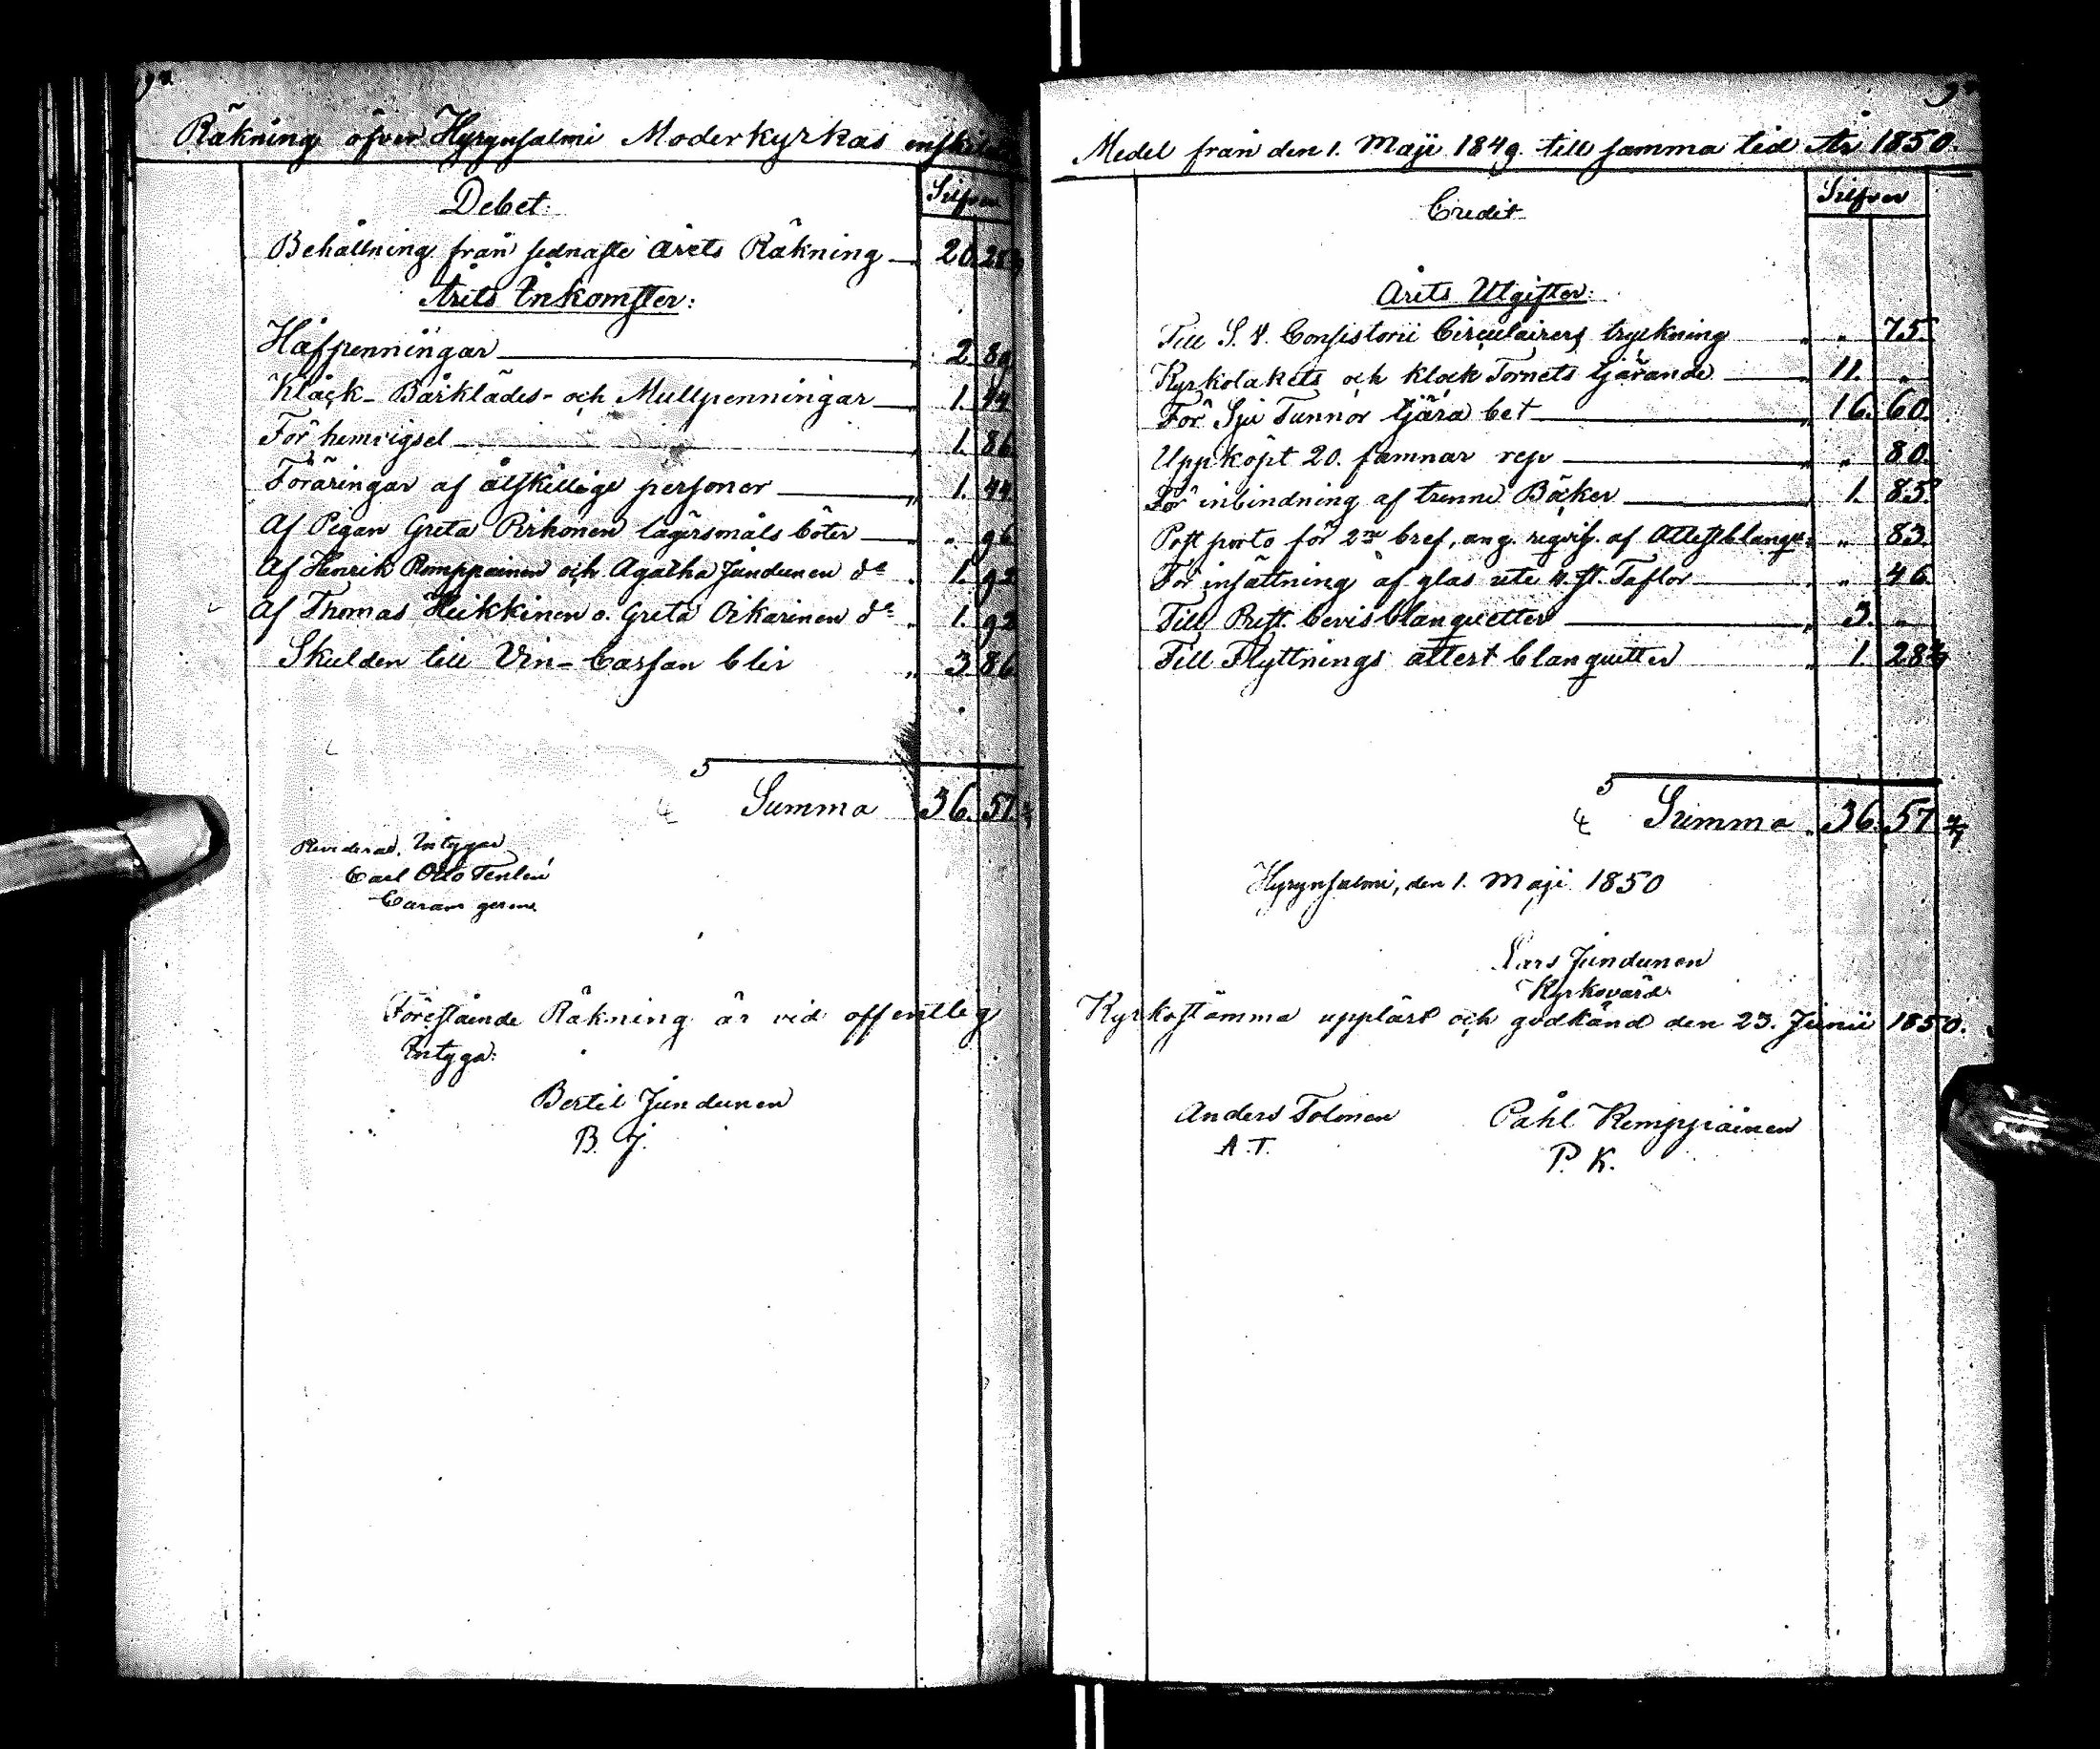 Räkning öfver Hyrynsalmi Moderkyrkas enskilda
Debet. Silfver
Behållning från sednaste årets Räkning 20. 28
Årets Inkomster:
Håfpenningar 2. 89
Klåck- Bårklädes- och Mullpenningar 1. 44
För hemvigsel 1. 86
Föräringar af åtskillige personer 1. 44
Af Pigan Greta Pirhonen lägersmåls böter " 96
Af Henrik Romppainen och Agatha Jundunen do 1. 92
Af Thomas Heikkinen o. Greta Oikarinen do 1. 92
Skulden till Vin-Cassan blir 3. 86
Summa 36. 57. 2/7
Reviderad, Intygar
Carl Otto
Förestående Räkning är vid offentlig
Intyga:
Bertil Jundunen
B. J.
Medel från den 1. Maji 1849. till samma tid År 1850.
Credit Silfver
Årets Utgifter:
Till S. V. Consistorii Circulairers tryckning " 75.
Kyrkotakets och klock Tornets tjärande 11. "
För Sju Tunnor tjära bet 16. 60.
Uppköpt 20. famnar rep " 80.
För inbindning af trenne Böcker 1. 85
Post porto för 2ne bref, ang. reqvis. af Attestblanqu. " 83.
För insättning af glas uti 4. st. Taflor " 46
Till Prest. bevis blanquetter 3. "
Till Flyttnings attest blanquetter 1. 28 2/7
Summa 36. 57 2/7
Hyrynsalmi, den 1. Maji 1850
Lars Jundunen
Kyrkovärd.
Kyrkostämma uppläst och godkänd den 23. Junii 1850.
Anders Tolonen Påhl Kemppainen
A. T. P. K.